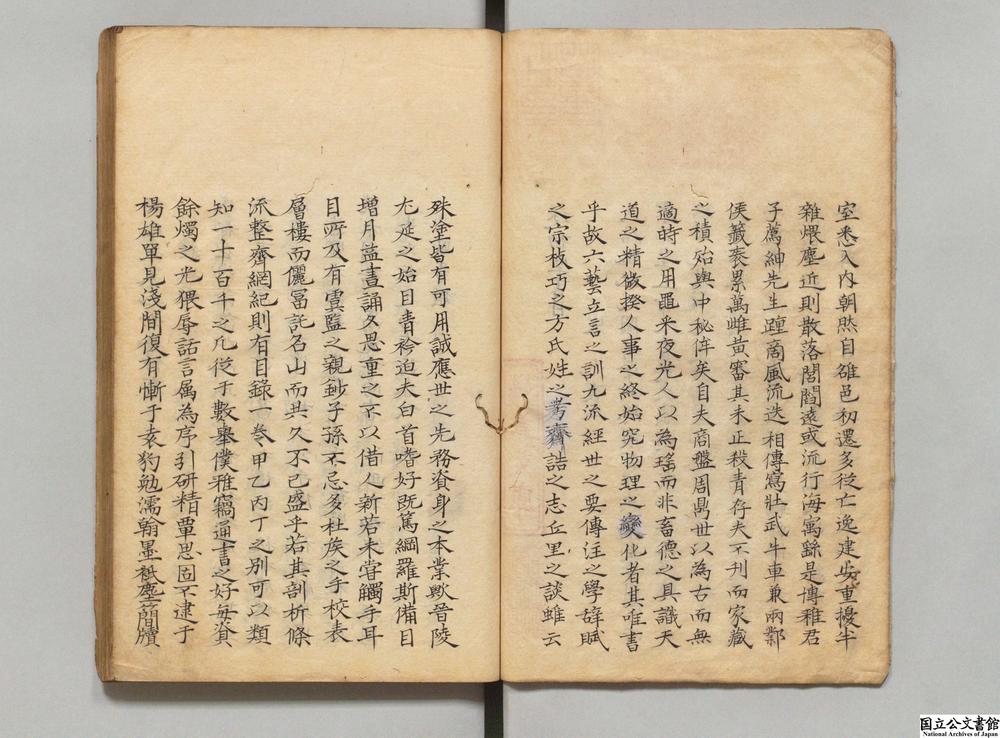 室悉入内朝烝自雒邑初還多從亡逸建炎重擾半
雜煨塵近則散落閭閻遠或流行海寓繇是博雅君
子薦紳先生踵商風流迭相傳寫壯武牛車兼兩鄴
侯籤袠累萬雌黃審其未正殺青存夫不刊而家藏
之積殆與中秘侔矣自夫商盤周鼎世以為古而無
適時之用黽采夜光人以為瑤而非畜德之具識天
道之精微揆人事之終始究物理之變化者其唯書
乎故六藝立言之訓九流經世之要傳注之學辭賦
之宗枝巧之方氏姓之考齋諧之志丘里之談雖云
殊塗皆有可用誠應世之先務資身之本業歟晉陵
尤延之始自青衿迫夫白首嗜好既篤網羅斯備日
增月益晝誦夕思重之不以借人新若未嘗觸手耳
目所及有虞監之親鈔子孫不忘多杜矦之手校表
層樓而儷冨託名山而共久不已盛乎若其剖析條
流整齊網紀則有目錄一卷甲乙丙丁之別可以類
知一十百千之凡從于數舉僕雅竊通書之好每資
餘燭之光猥辱話言属為序引研精覃思固不逮于
楊雄單見淺聞復有慚于袁豹勉濡翰墨祗塵簡牘
国立公文書館
National Archives of Japan